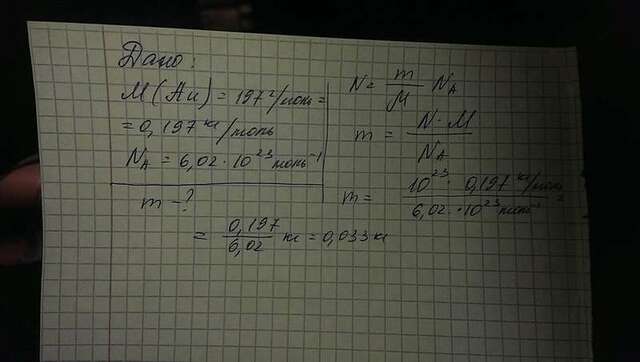 Дано:
M(Au) = 197 г/моль =
= 0,197 кг/моль
N_A = 6,02 · 10²³ моль⁻¹
m - ?
N = m/M N_A
m = N·M/N_A
m = 10²³ · 0,197 кг/моль / 6,02 · 10²³ моль⁻¹ =
= 0,197/6,02 кг = 0,033 кг